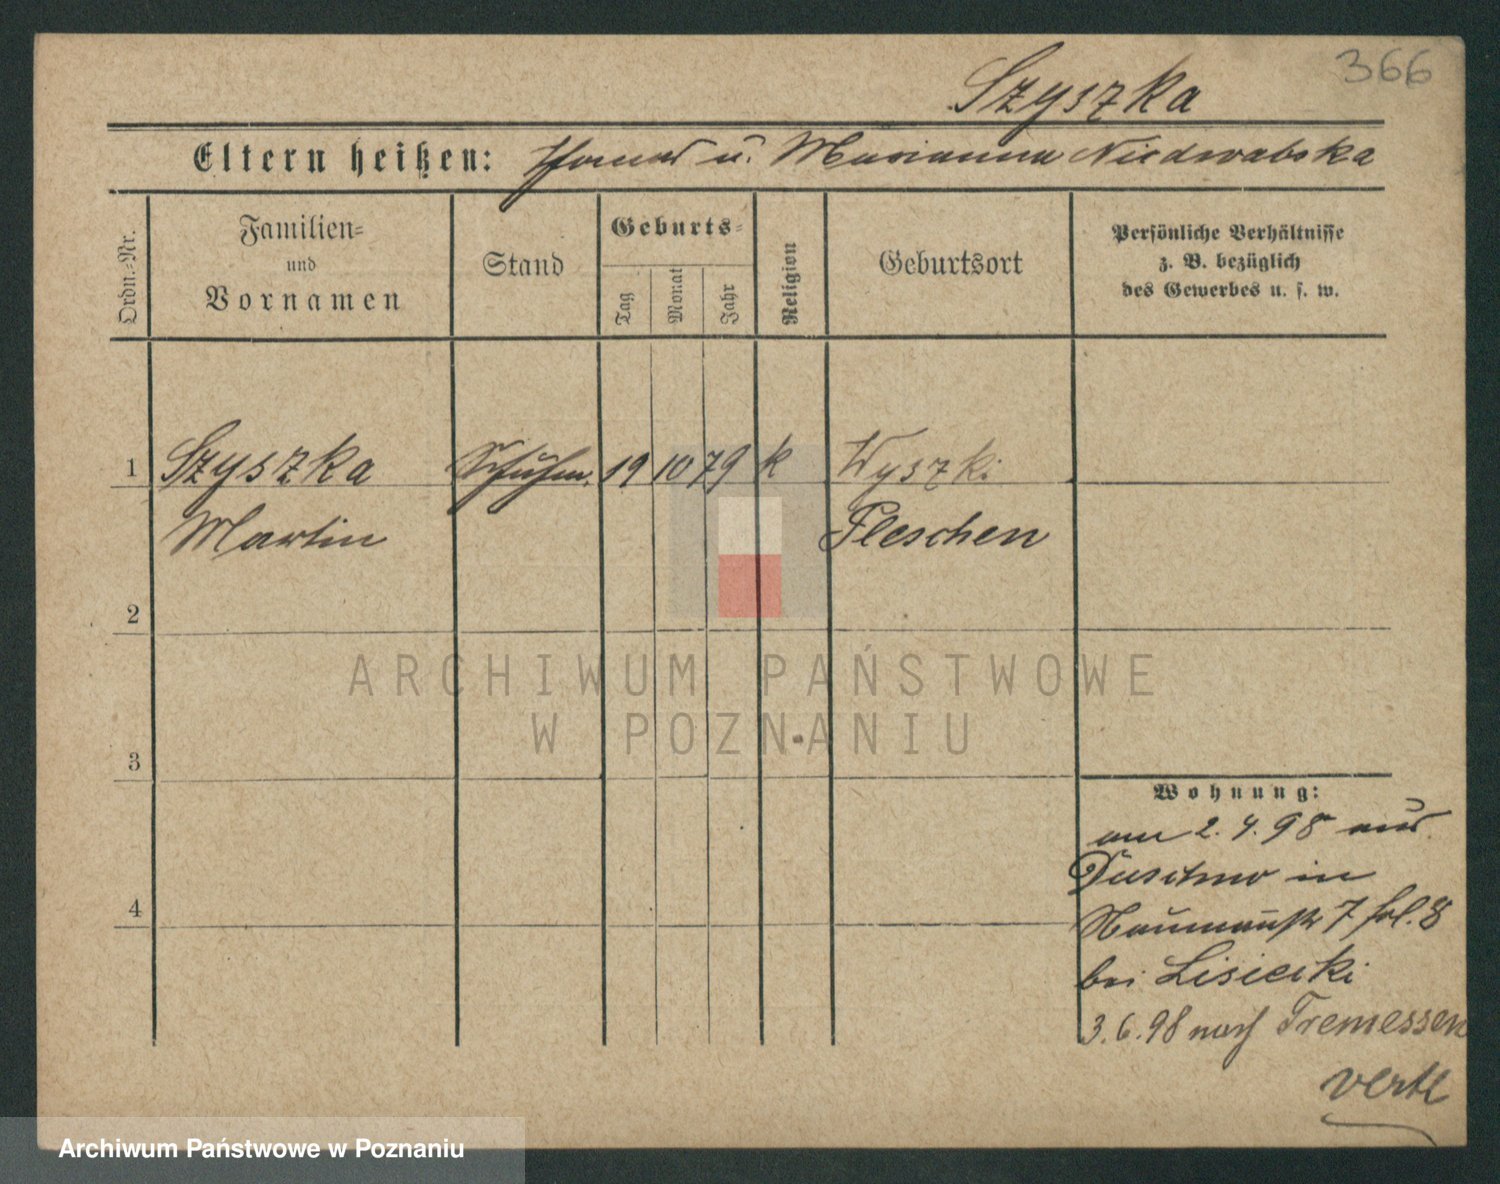 366
Szyszka
Eltern heißen: u. Marianna Niedwabska
Ordn.-Nr.
Familien-
und
Vornamen
Stand
Geburts-
Tag
Monat
Jahr
Religion
Geburtsort
Persönliche Verhältnisse
z. B. bezüglich
des Gewerbes u. s. w.
1 Szyszka Schuhm. 19 10 79 k Wyszki
Martin Pleschen
2
ARCHIWUM PAŃSTWOWE
W POZNANIU
3
Wohnung:
am 2.4.98 aus
in
Naumannstr 7 hof. 8
bei Lisiecki
4
3.6.98 nach Tremessen
verte
Archiwum Państwowe w Poznaniu